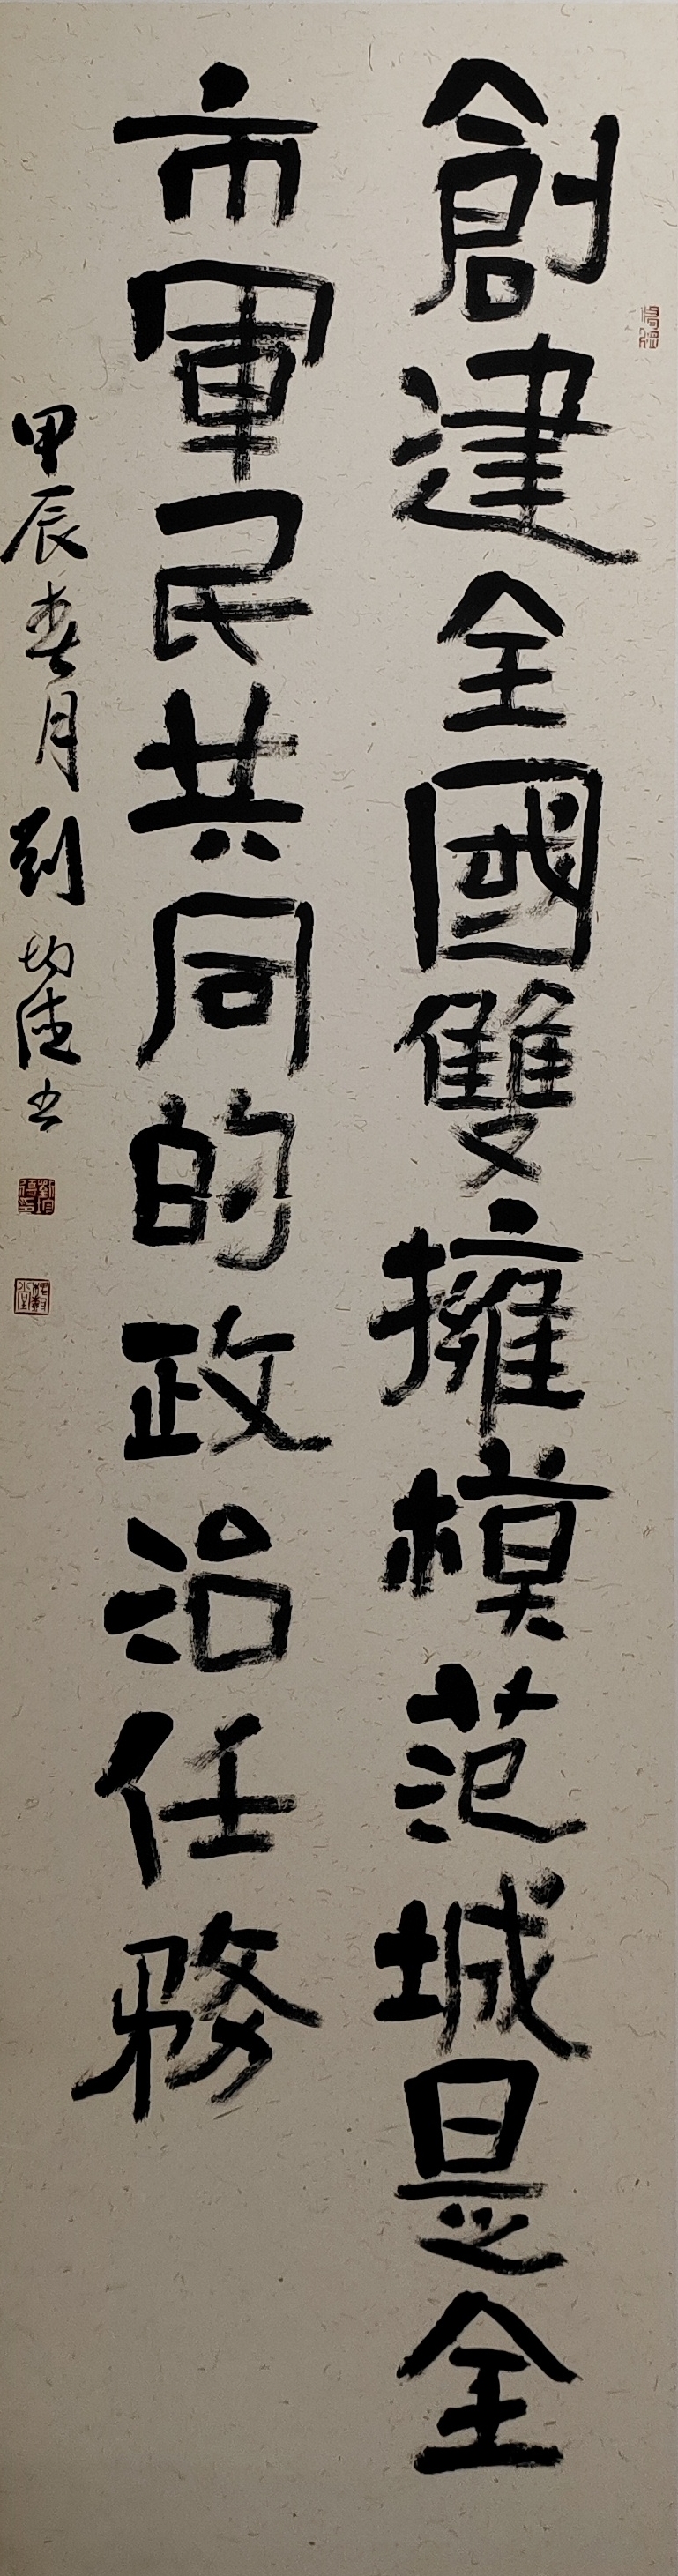 創建全國雙擁模范城是全
市軍民共同的政治任務
甲辰春月劉德书